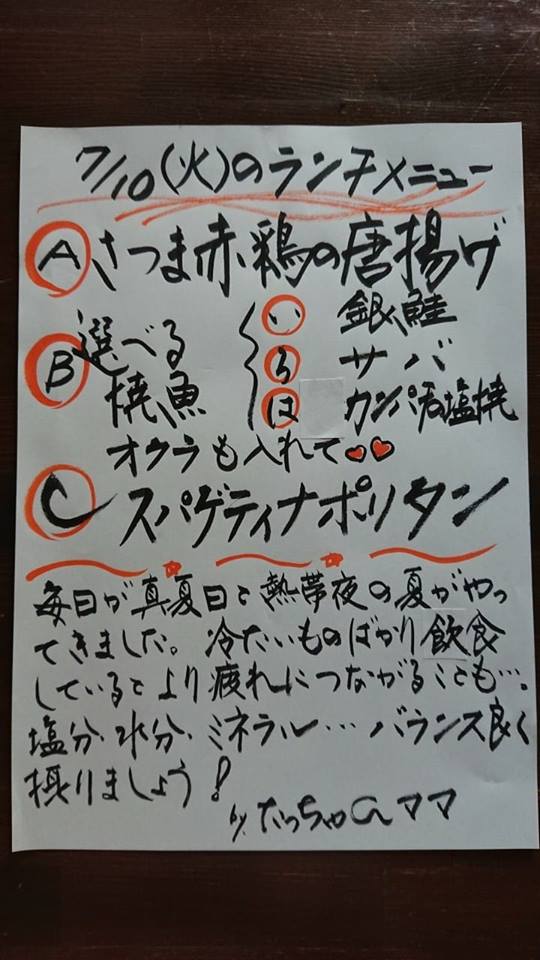 7/10(火)のランチメニュー
A さつま赤鶏の唐揚げ
B 選べる焼魚
い 銀鮭
ろ サバ
は カンパチ塩焼
オクラも入れて
C スパゲティナポリタン
毎日が真夏日と熱帯夜の夏がやっ
てきました。冷たいものばかり飲食
しているとより疲れにつながることも…。
塩分・水分・ミネラル…バランス良く
摂りましょう!
by だっちゃんママ